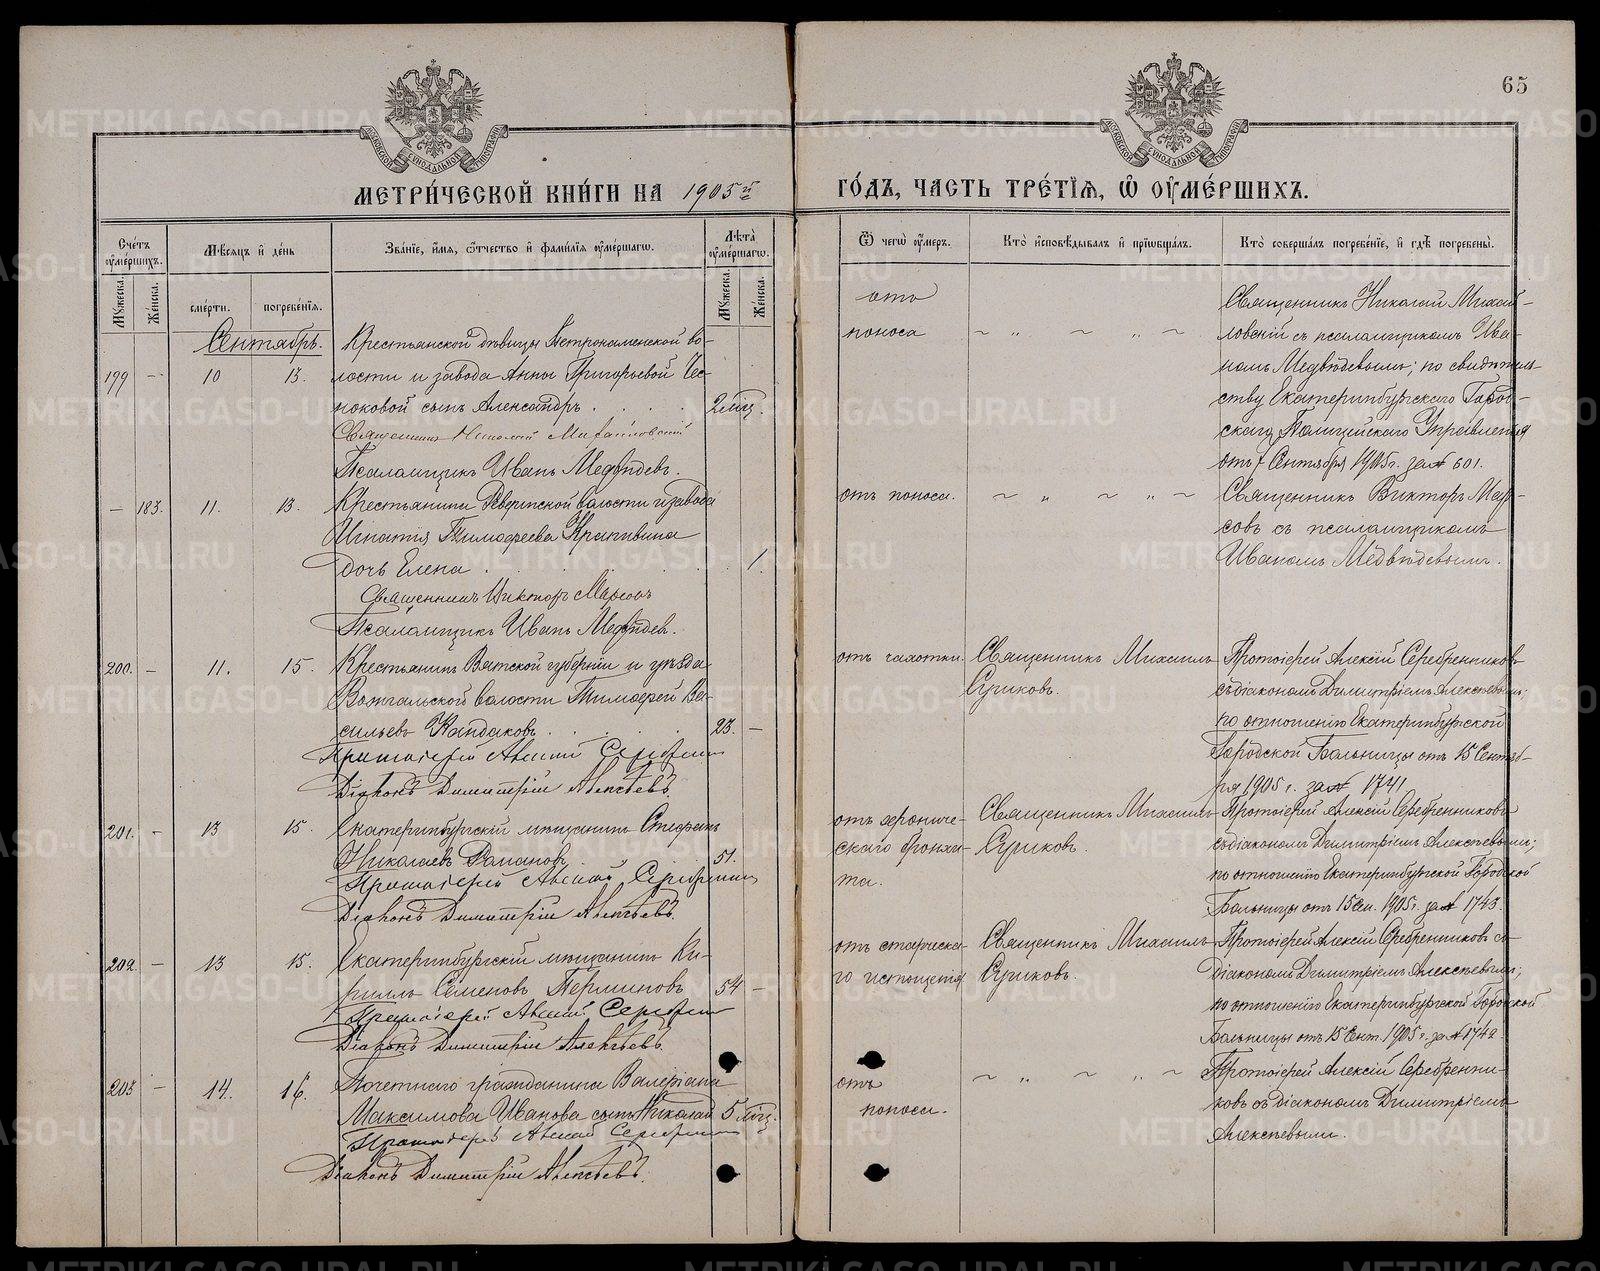 65
МОСКОВСКОЙ СѴНОДАЛЬНОЙ ТИПОГРАФІИ
МОСКОВСКОЙ СѴНОДАЛЬНОЙ ТИПОГРАФІИ
МЕТРИ́ЧЕСКОЙ КНИ́ГИ НА 1905й
ГО́ДЪ, ЧАСТЬ ТРЕ́ТІѦ, Ѽ ОУМЕ́РШИХЪ.
Сче́тъ оумершихъ.
Мужеска.
Женска.
Мѣсяцъ и де́нь
сме́рти.
погребе́нія.
Зва́ніе, и́мя, ѻтчество и фами́лія оуме́ршагѡ.
Лѣта̀ оуме́ршагѡ.
Мужеска.
Женска.
Ѿ чегѡ̀ оу́меръ.
Кто̀ исповѣ́дывалъ и пріѡбща́лъ.
Кто̀ соверша́лъ погребе́ніе, и гдѣ̀ погребены̀.
Сентябрь.
199 — 10 13.
Крестьянской дѣвицы Петрокаменской во-
лости и завода Анны Григорьевой Чес-
ноковой сынъ Александръ . . . . 2 мѣс.
Священникъ Николай Михайловскій
Псаломщикъ Иванъ Медвѣдевъ.
отъ
поноса
Священникъ Николай Михай-
ловскій съ псаломщикомъ Ива-
номъ Медвѣдевымъ; по свидѣтель-
ству Екатеринбургскаго Город-
скаго Полицейскаго Управленія
отъ 7 Сентября 1905 г. за № 601.
— 183. 11. 13.
Крестьянина Ревдинской волости и завода
Игнатія Тимофеева Крапивина
дочь Елена . . . . 1.
Священникъ Викторъ Марсовъ
Псаломщикъ Иванъ Медвѣдев.
отъ поноса.
Священникъ Викторъ Мар-
совъ съ псаломщикомъ
Иваномъ Медвѣдевымъ.
200. — 11. 15.
Крестьянинъ Вятской губерніи и уѣзда
Вожгальской волости Тимофей Ва-
сильевъ Кандаковъ . . . . 23. —
Протоіерей Алексій Серебрен
Діаконъ Димитрій Алексѣевъ.
отъ чахотки.
Священникъ Михаилъ
Суриковъ.
Протоіерей Алексій Серебренниковъ
съ діакономъ Димитріемъ Алексѣевымъ;
по отношенію Екатеринбургской
Городской Больницы отъ 15 Сентяб-
ря 1905 г. за № 1741
201. — 13 15.
Екатеринбургскій мѣщанинъ Стефанъ
Николаевъ Романовъ . . . 51.
Протоіерей Алексій Серебренник
Діаконъ Димитрій Алексѣевъ.
отъ хрониче-
скаго бронхи-
та.
Священникъ Михаилъ
Суриковъ.
Протоіерей Алексій Серебренниковъ
съ діакономъ Димитріемъ Алексѣевымъ;
по отношенію Екатеринбургской Городской
Больницы отъ 15 Сен. 1905 г. за № 1743.
202. — 13 15.
Екатеринбургскій мѣщанинъ Ки-
риллъ Семеновъ Перминовъ 54 —
Протоіерей Алексій Серебрен
Діаконъ Димитрій Алексѣевъ.
отъ старческа-
го истощенія
Священникъ Михаилъ
Суриковъ.
Протоіерей Алексій Серебренниковъ съ
діакономъ Димитріемъ Алексѣевымъ;
по отношенію Екатеринбургской Городской
Больницы отъ 15 Сент. 1905 г. за № 1742.
203 — 14. 16.
Почетнаго гражданина Валеріана
Максимова Иванова сынъ Николай 5 мѣс.
Протоіерей Алексій Серебренник
Діаконъ Димитрій Алексѣевъ.
отъ
поноса.
Протоіерей Алексій Серебренни-
ковъ съ діакономъ Димитріемъ
Алексѣевымъ.
METRIKI.GASO-URAL.RU